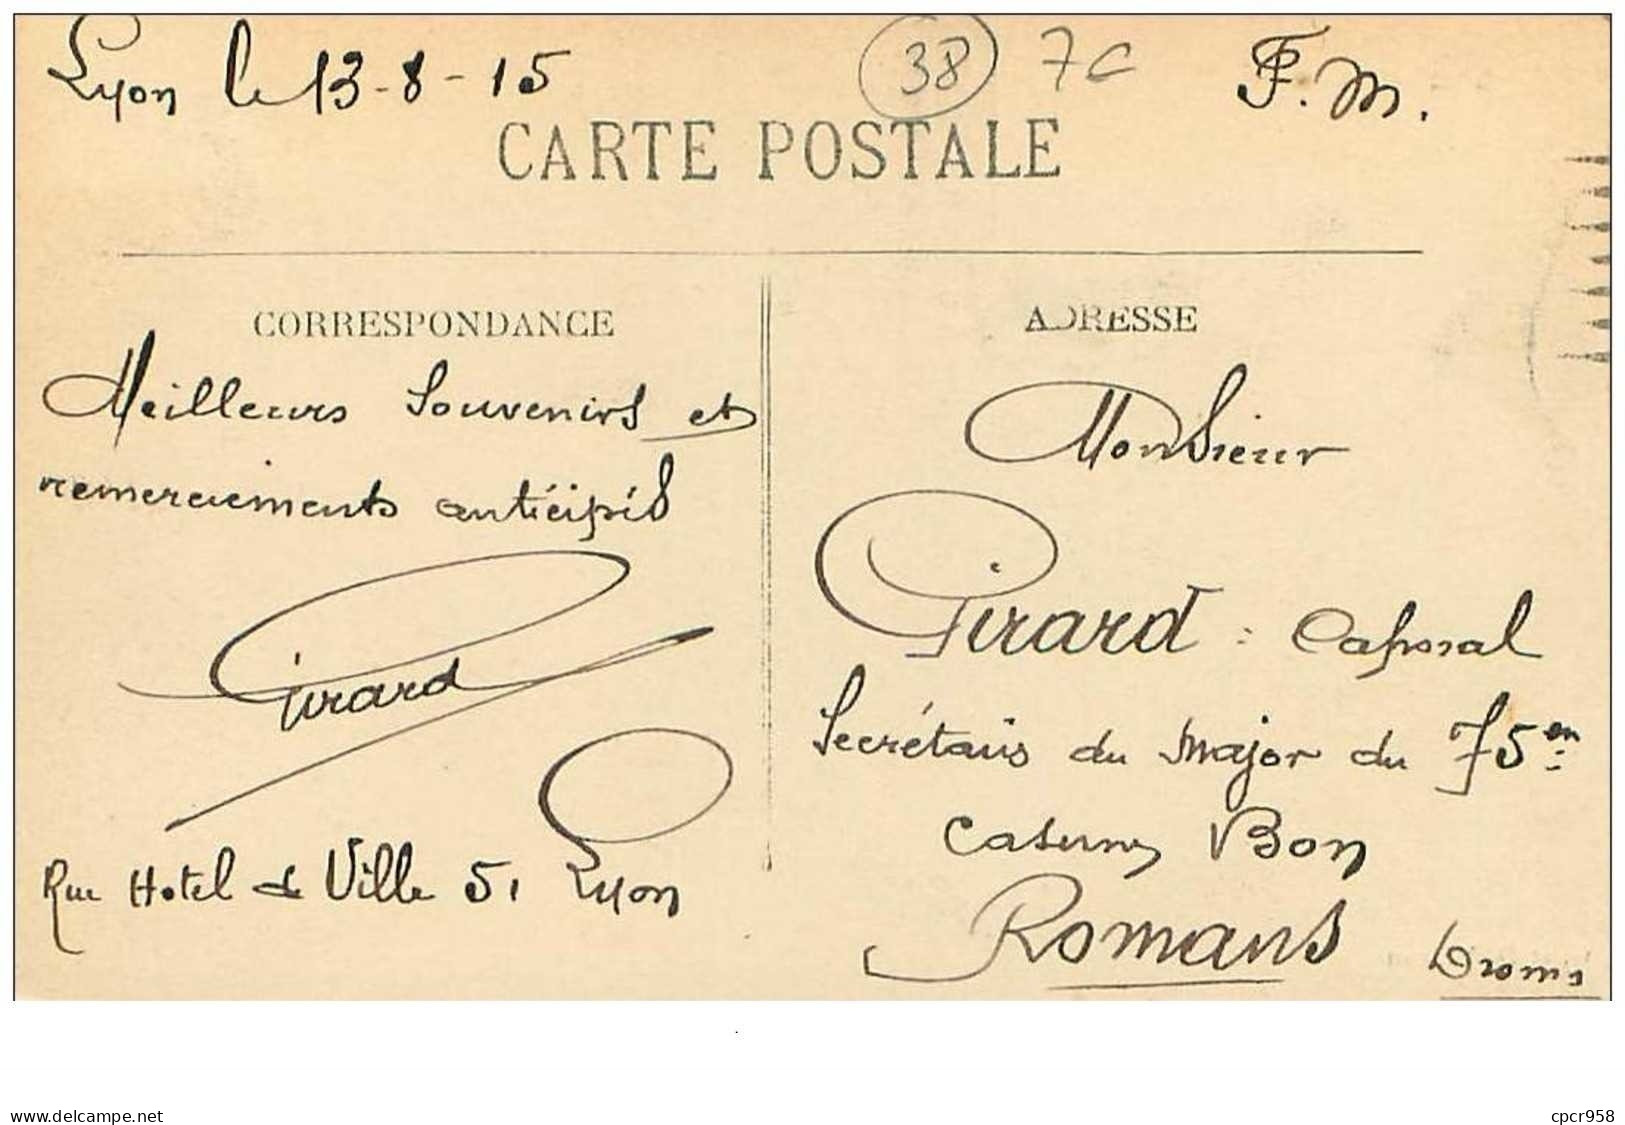 Lyon le 13-8-15
38 7c
F. M.
CARTE POSTALE
CORRESPONDANCE
Meilleurs souvenirs et
remerciements anticipés
Girard
Rue Hotel de Ville 51 Lyon
ADRESSE
Monsieur
Girard : Caporal
Secrétaire du Major du 75en
Caserne Bon
Romans Drome
www.delcampe.net
cpcr958